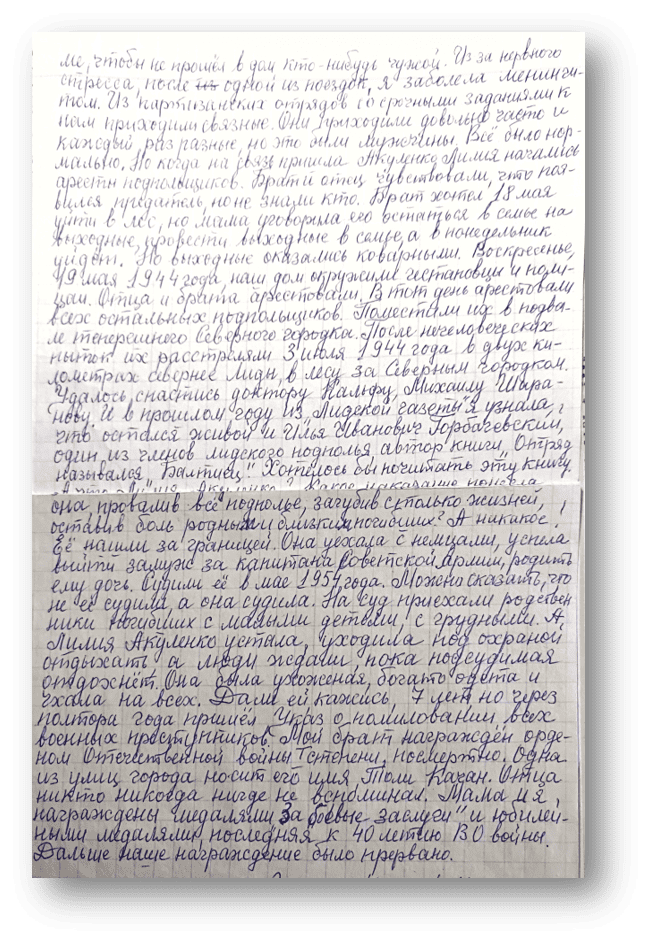 ме, чтобы не прошёл в дом кто-нибудь чужой. Из за нервного
стресса, после из одной из поездок, я заболела менинги-
том. Из партизанских отрядов со срочными заданиями к
нам приходили связные. Они приходили довольно часто и
каждый раз разные, но это были мужчины. Всё было нор-
мально. Но когда на связь пришла Акуленко Лилия начались
аресты подпольщиков. Брат и отец чувствовали, что поя-
вился предатель, но не знали кто. Брат хотел 18 мая
уйти в лес, но мама уговорила его остаться в семье на
выходные, провести выходные в семье, а в понедельник
уйдёт. Но выходные оказались коварными. Воскресенье,
19 мая 1944 года, наш дом окружили гестаповцы и поли-
цаи. Отца и брата арестовали. В тот день арестовали
всех остальных подпольщиков. Поместили их в подва-
ле теперешнего Северного городка. После нечеловеческих
пыток их расстреляли 3 июля 1944 года в двух ки-
лометрах севернее Лиды, в лесу за Северным городком.
Удалось спастись доктору Кальфу, Михаилу Шара-
нову. И в прошлом году из „Лидской газеты" я узнала,
что остался живой и Илья Иванович Горбачевский,
один из членов лидского подполья, автор книги „Отряд
назывался „Балтиец". Хотелось бы почитать эту книгу.
Акуленко? Какое наказание понесла
она, провалив всё подполье, загубив столько жизней,
оставив боль родным и близким погибших? А никакое!
Её нашли за границей. Она уехала с немцами, успела
выйти замуж за капитана Советской Армии, родить
ему дочь. Судили её в мае 1954 года. Можно сказать, что
не её судили, а она судила. На суд приехали родствен
ники погибших с малыми детьми, с грудными. А,
Лилия Акуленко устала, уходила под охраной
отдыхать, а люди ждали, пока подсудимая
отдохнёт. Она была ухоженая, богато одета и
чхала на всех. Дали ей кажись, 7 лет, но через
полтора года пришёл Указ о помиловании всех
военных преступников. Мой брат награждён орде-
ном Отечественной войны I степени, посмертно. Одна
из улиц города носит его имя Толи Качан. Отца
никто никогда нигде не вспоминал. Мама и я,
награждены медалями „За боевые заслуги" и юбилей-
ными медалями, последняя к 40 летию ВО войны.
Дальше наше награждение было прервано.